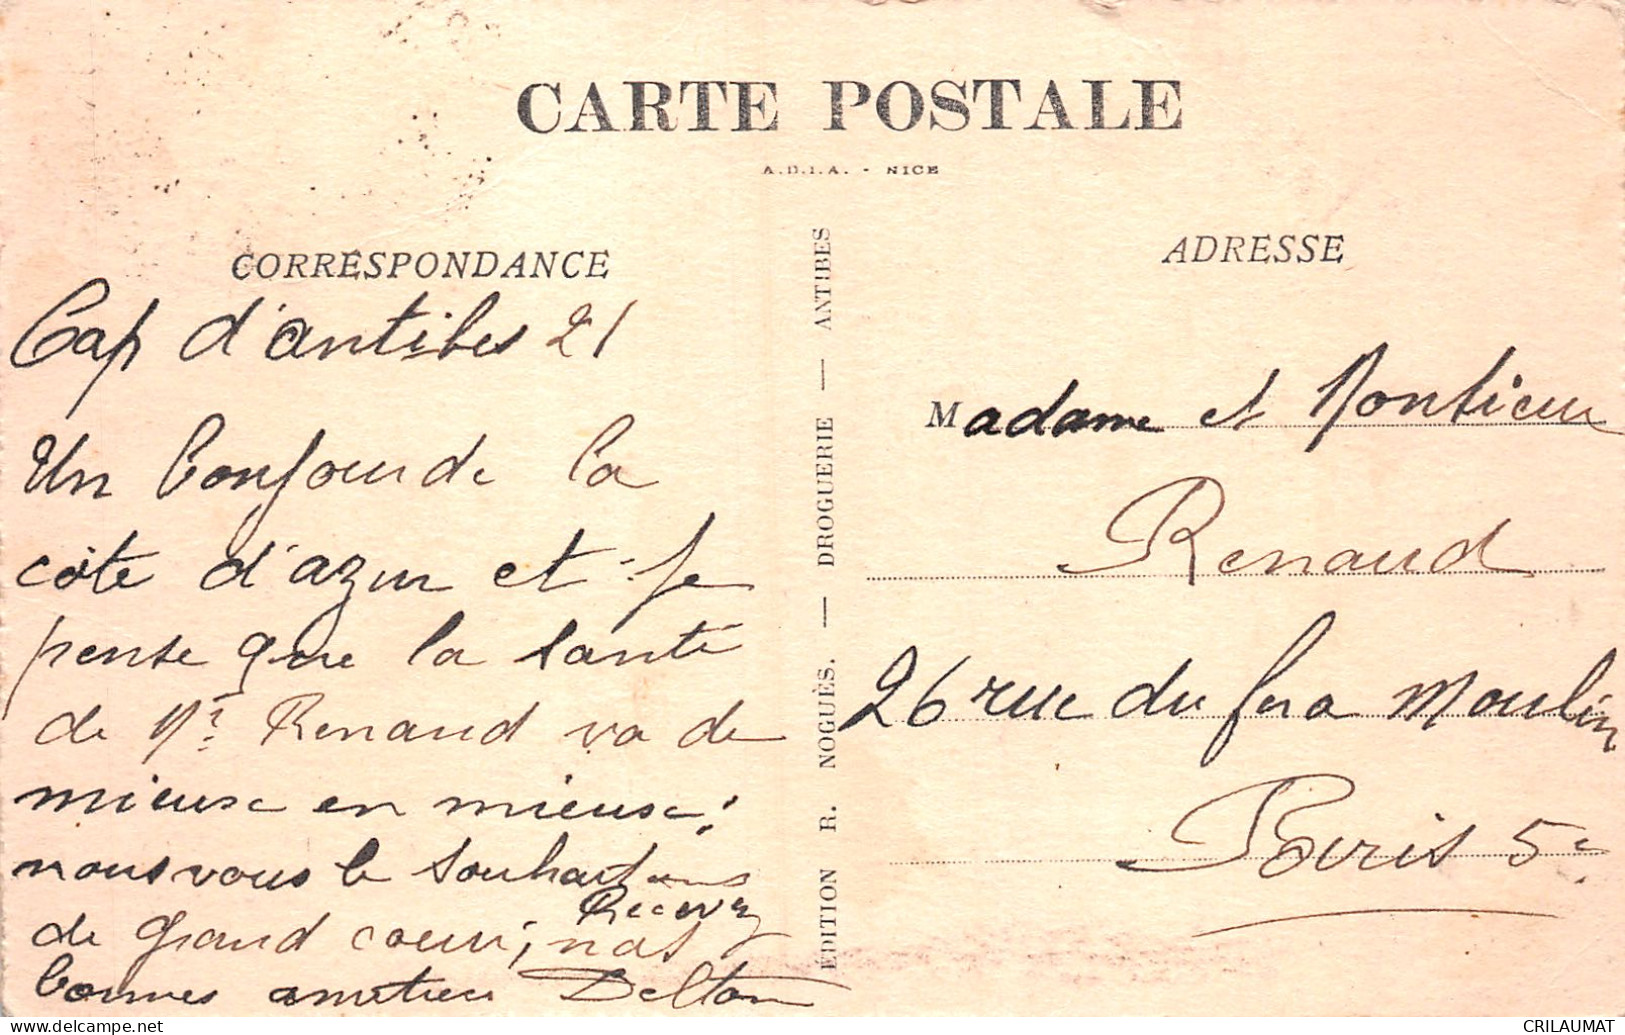 CARTE POSTALE
A.D.I.A. - NICE
CORRESPONDANCE
Cap d'antibes 21
Un bonjour de la
côte d'azur et je
pense que la santé
de Mr Renaud va de
mieuse en mieuse!
nous vous le souhaitons
de grand coeur, Recevez
nos
bonnes amitiers
ÉDITION R. NOGUÈS. — DROGUERIE — ANTIBES
ADRESSE
Madame et Monsieur
Renaud
26 rue du fera Moulin
Paris 5e
www.delcampe.net
CRILAUMAT